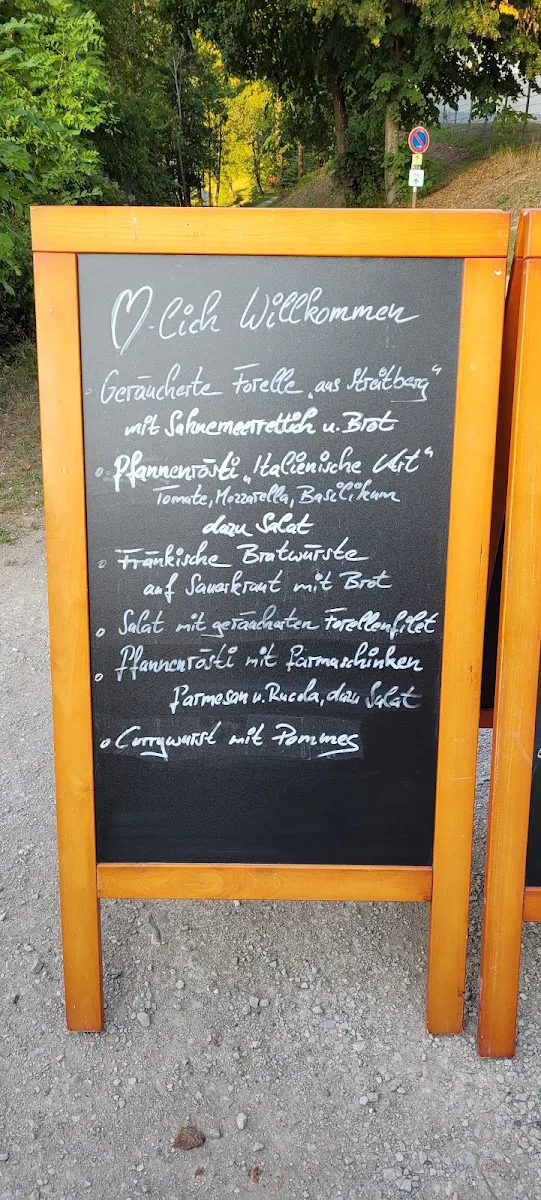 ♡-lich Willkommen
Geräucherte Forelle „aus Streitberg“
mit Sahnemeerrettich u. Brot
Pfannenrösti „Italienische Art“
Tomate, Mozzarella, Basilikum
dazu Salat
Fränkische Bratwürste
auf Sauerkraut mit Brot
Salat mit geräucherten Forellenfilet
Pfannenrösti mit Parmaschinken
Parmesan u. Rucola, dazu Salat
Currywurst mit Pommes